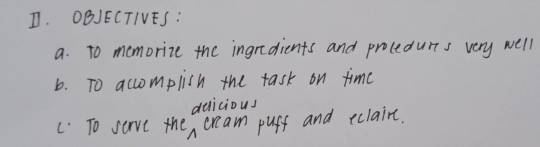 II. OBJECTIVES:
a. To memorize the ingredients and procedures very well
b. To accomplish the task on time
c. To serve the delicious cream puff and eclaire.